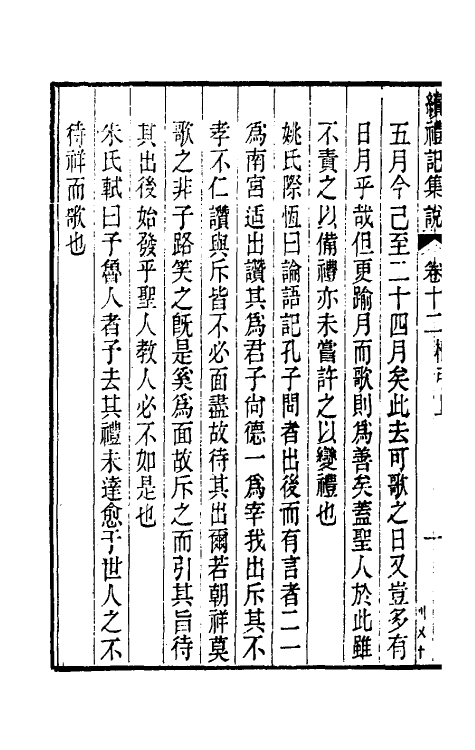 五月今己至二十四月矣此去可歌之日又豈多有
日月乎哉但更踰月而歌則爲善矣蓋聖人於此雖
不責之以備禮亦未嘗許之以變禮也
姚氏際恆曰論語記孔子問者出後而有言者二一
爲南宮适出讚其爲君子尙德一爲宰我出斥其不
孝不仁讚與斥皆不必面盡故待其出爾若朝祥莫
歌之非子路笑之旣是奚爲面故斥之而引其旨待
其出後始發乎聖人教人必不如是也
朱氏軾曰子魯人者予去其禮未達愈于世人之不
待祥而歌也
續禮記集說 卷十二